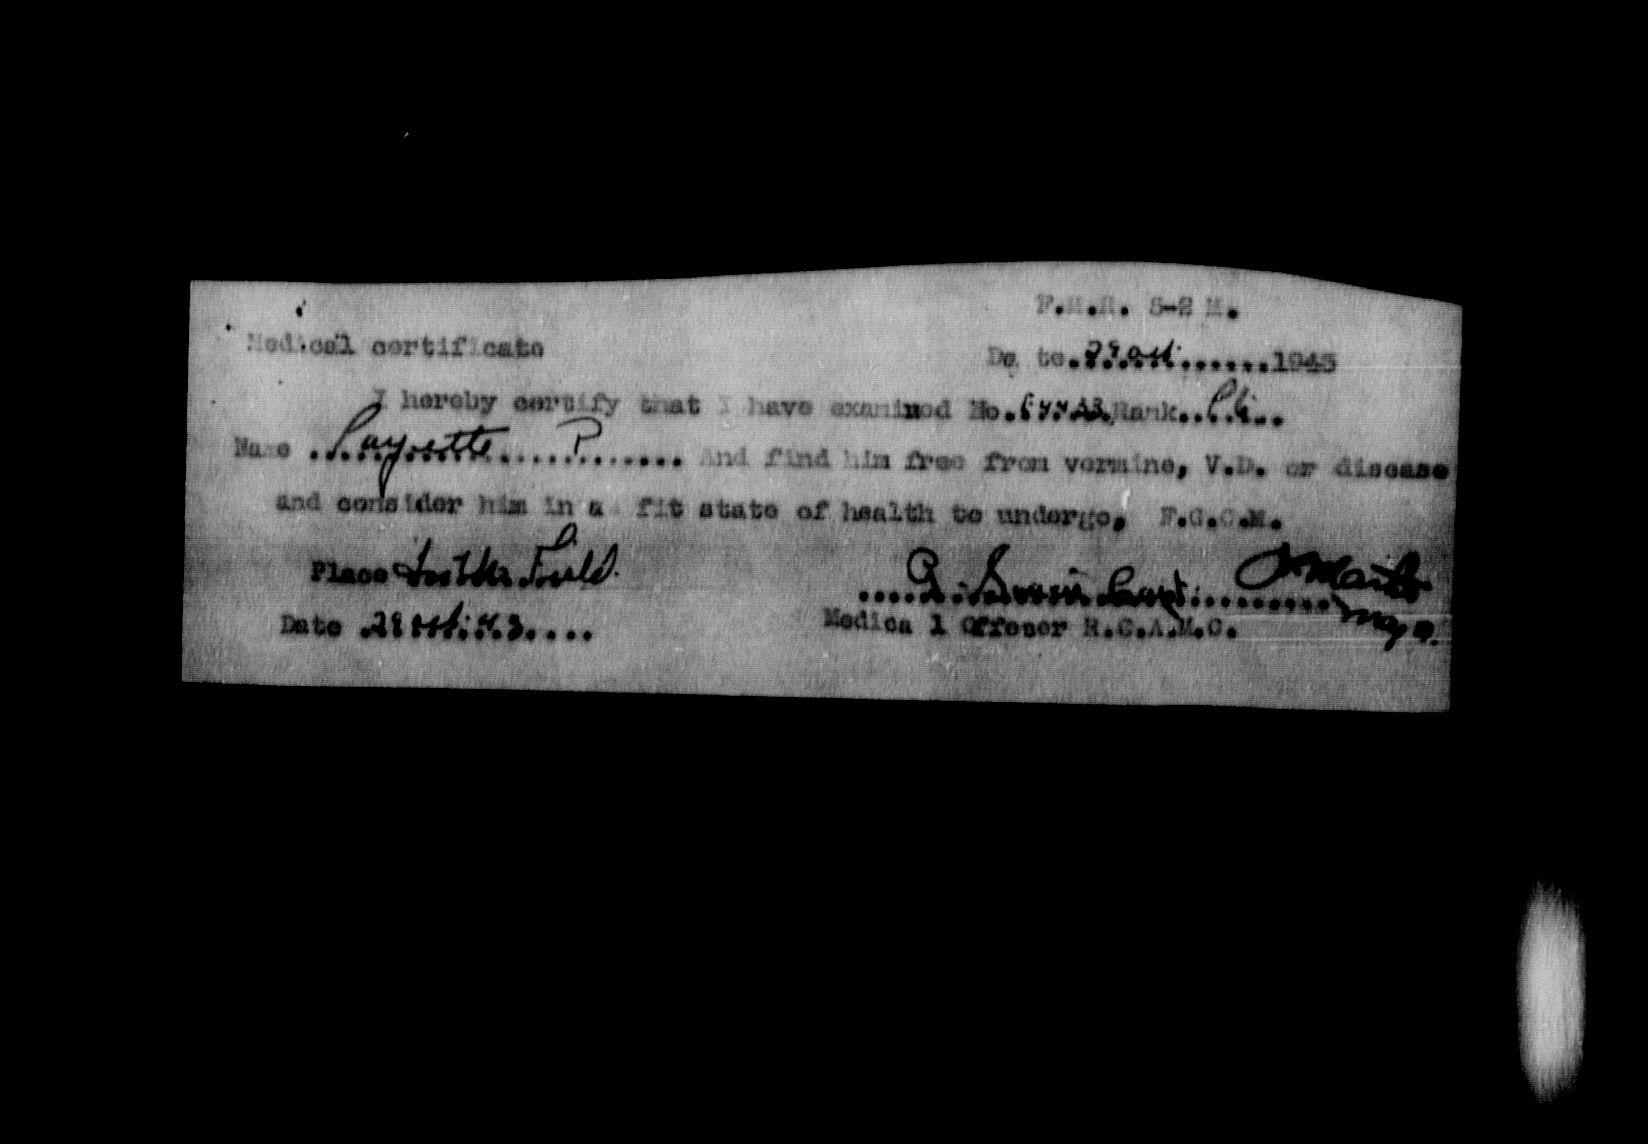 F.M.R. 5-2 M.
Medical certificate
Da te. 29 Oct. ......1943
I hereby certify that I have examined No. Rank..
Name ...Payette P....... And find him free from vermine, V.D. or disease
and consider him in a fit state of health to undergo, F.G.C.M.
Place In the Field.
Date .29 Oct. 43.....
Medica l Offecer R.C.A.M.C.